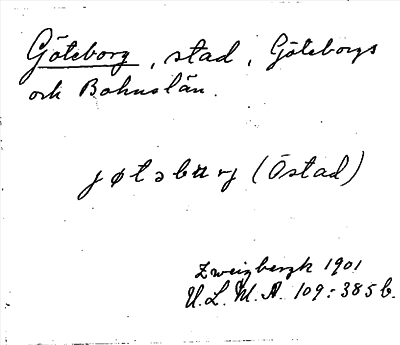 Göteborg, stad, Göteborgs
och Bohuslän.
jøtəbɯrj (Östad)
Zweigbergk 1901
U.L.M.A. 109:385 b.